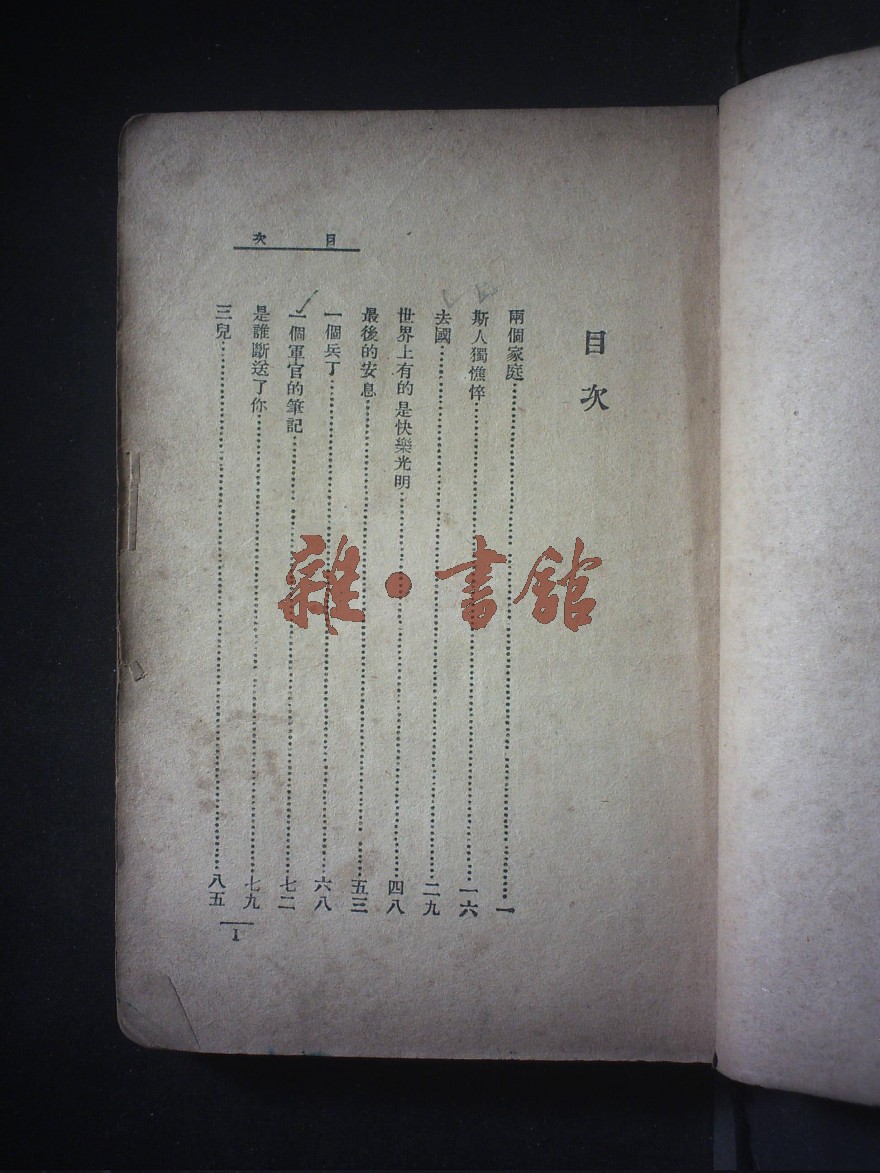 目次
目次
兩個家庭……一
斯人獨憔悴……一六
去國……二九
世界上有的是快樂光明……四八
最後的安息……五三
一個兵丁……六八
一個軍官的筆記……七二
是誰斷送了你……七九
三兒……八五
1
雜·書館